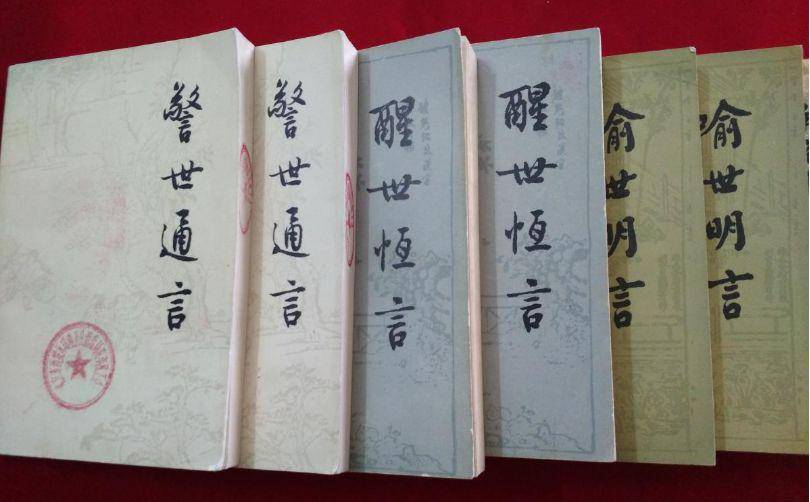 警世通言
警世通言
醒世恆言
醒世恆言
喻世明言
喻世明言